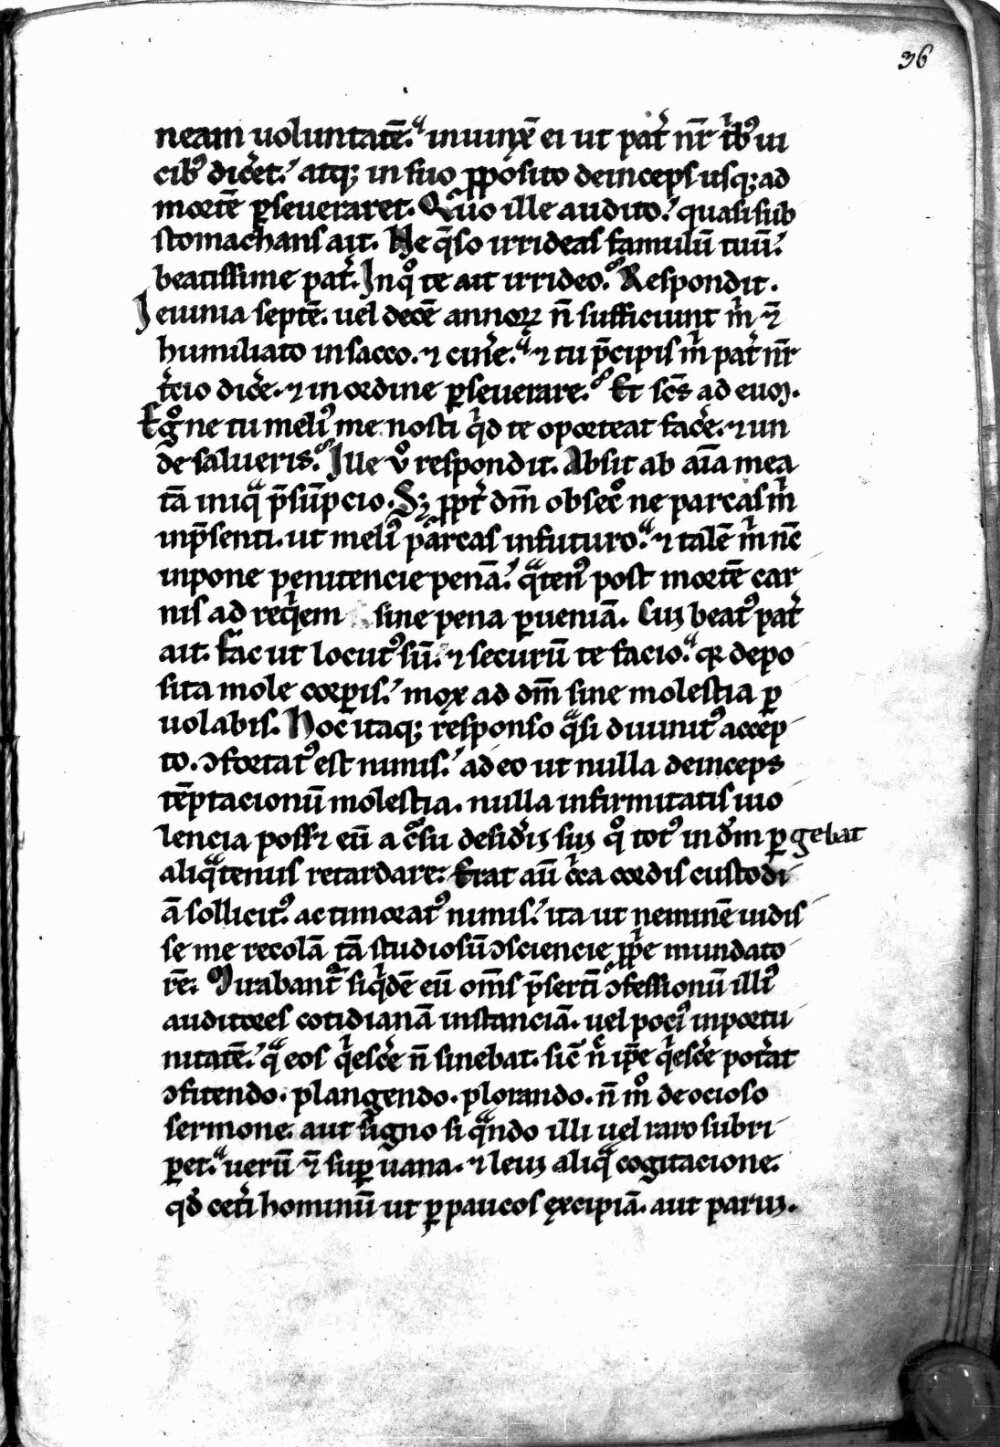 36
neam uoluntatē. iniunx̄ ei ut pat̄ nr̄ t͛bꝰ ui
cibꝰ dic͛et. atqꝫ in suo ꝓposito deinceps usqꝫ ad
mortē ꝑseueraret. Quo ille audito. quasi sub
stomachans ait. Ne q̄so irrideas famulū tuū.
beatissime pat͛. Inqͦ te ait irrideo. Respondit.
Ieiunia septē. uel decē annoꝝ n̄ sufficiunt m̍ ⁊̄
humiliato in sacco. ⁊ cin͛e. ⁊ tu p̄cipis m̍ pat͛ nr̄
t͛cio dic͛e. ⁊ in ordine ꝑseuerare. Et sc̄s ad euꝫ.
Egͦ ne tu meliꝰ me nosti qͥd te oporteat fac͛e. ⁊ un
de salueris. Ille uͦ respondit. Absit ab aīa mea
tā iniqᷓ p̄sūpcio. Sꝫ ꝓpt͛ dm̄ obsecͦ ne parcas m̍
inp̄senti. ut meliꝰ parcas in futuro. ⁊ talē m̍ nc̄
inpone penitencie penā. qᷓtenꝰ post mortē car
nis ad reqͥem sine pena ꝑueniā. Cui beatꝰ pat͛
ait. Fac ut locutꝰ sū. ⁊ securū te facio. qꝛ depo
sita mole corꝑis. mox ad dm̄ sine molestia ꝑ
uolabis. Hoc itaqꝫ responso qᷓsi diuinitꝰ accep
to. ꝯfortatꝰ est nimis. adeo ut nulla deinceps
tēptacionū molestia. nulla infirmitatis uio
lencia poss⁊ eū a c͛su desid͛ij sui qͦ totꝰ in dm̄ ꝑgebat
aliqᷓtenus retardare. Erat aū c͛ca cordis custodi
ā sollicitꝰ. ac timoratꝰ nimis. ita ut neminē uidis
se me recolā tā studiosū ꝯsciencie ꝓp͛e mundato
rē. Iurabant͛ siqͥdē eū om̄s p̄sertī ꝯfessionū illiꝰ
auditores cotidianā instanciā. uel pociꝰ inportu
nitatē. qᷓ eos qͥesc͛e n̄ sinebat. sic̄ n̍ ip̄e qͥesc͛e pot͛at
ꝯfitendo. plangendo. plorando. n̄ mͦ de ocioso
sermone. aut signo si qᷓndo illi uel raro subri
ꝑet. uerū ⁊̄ suꝑ uana. ⁊ leui aliqᷓ cogitacione.
qd̄ cet͛i hominū ut ꝑpaucos excipiā. aut parui.